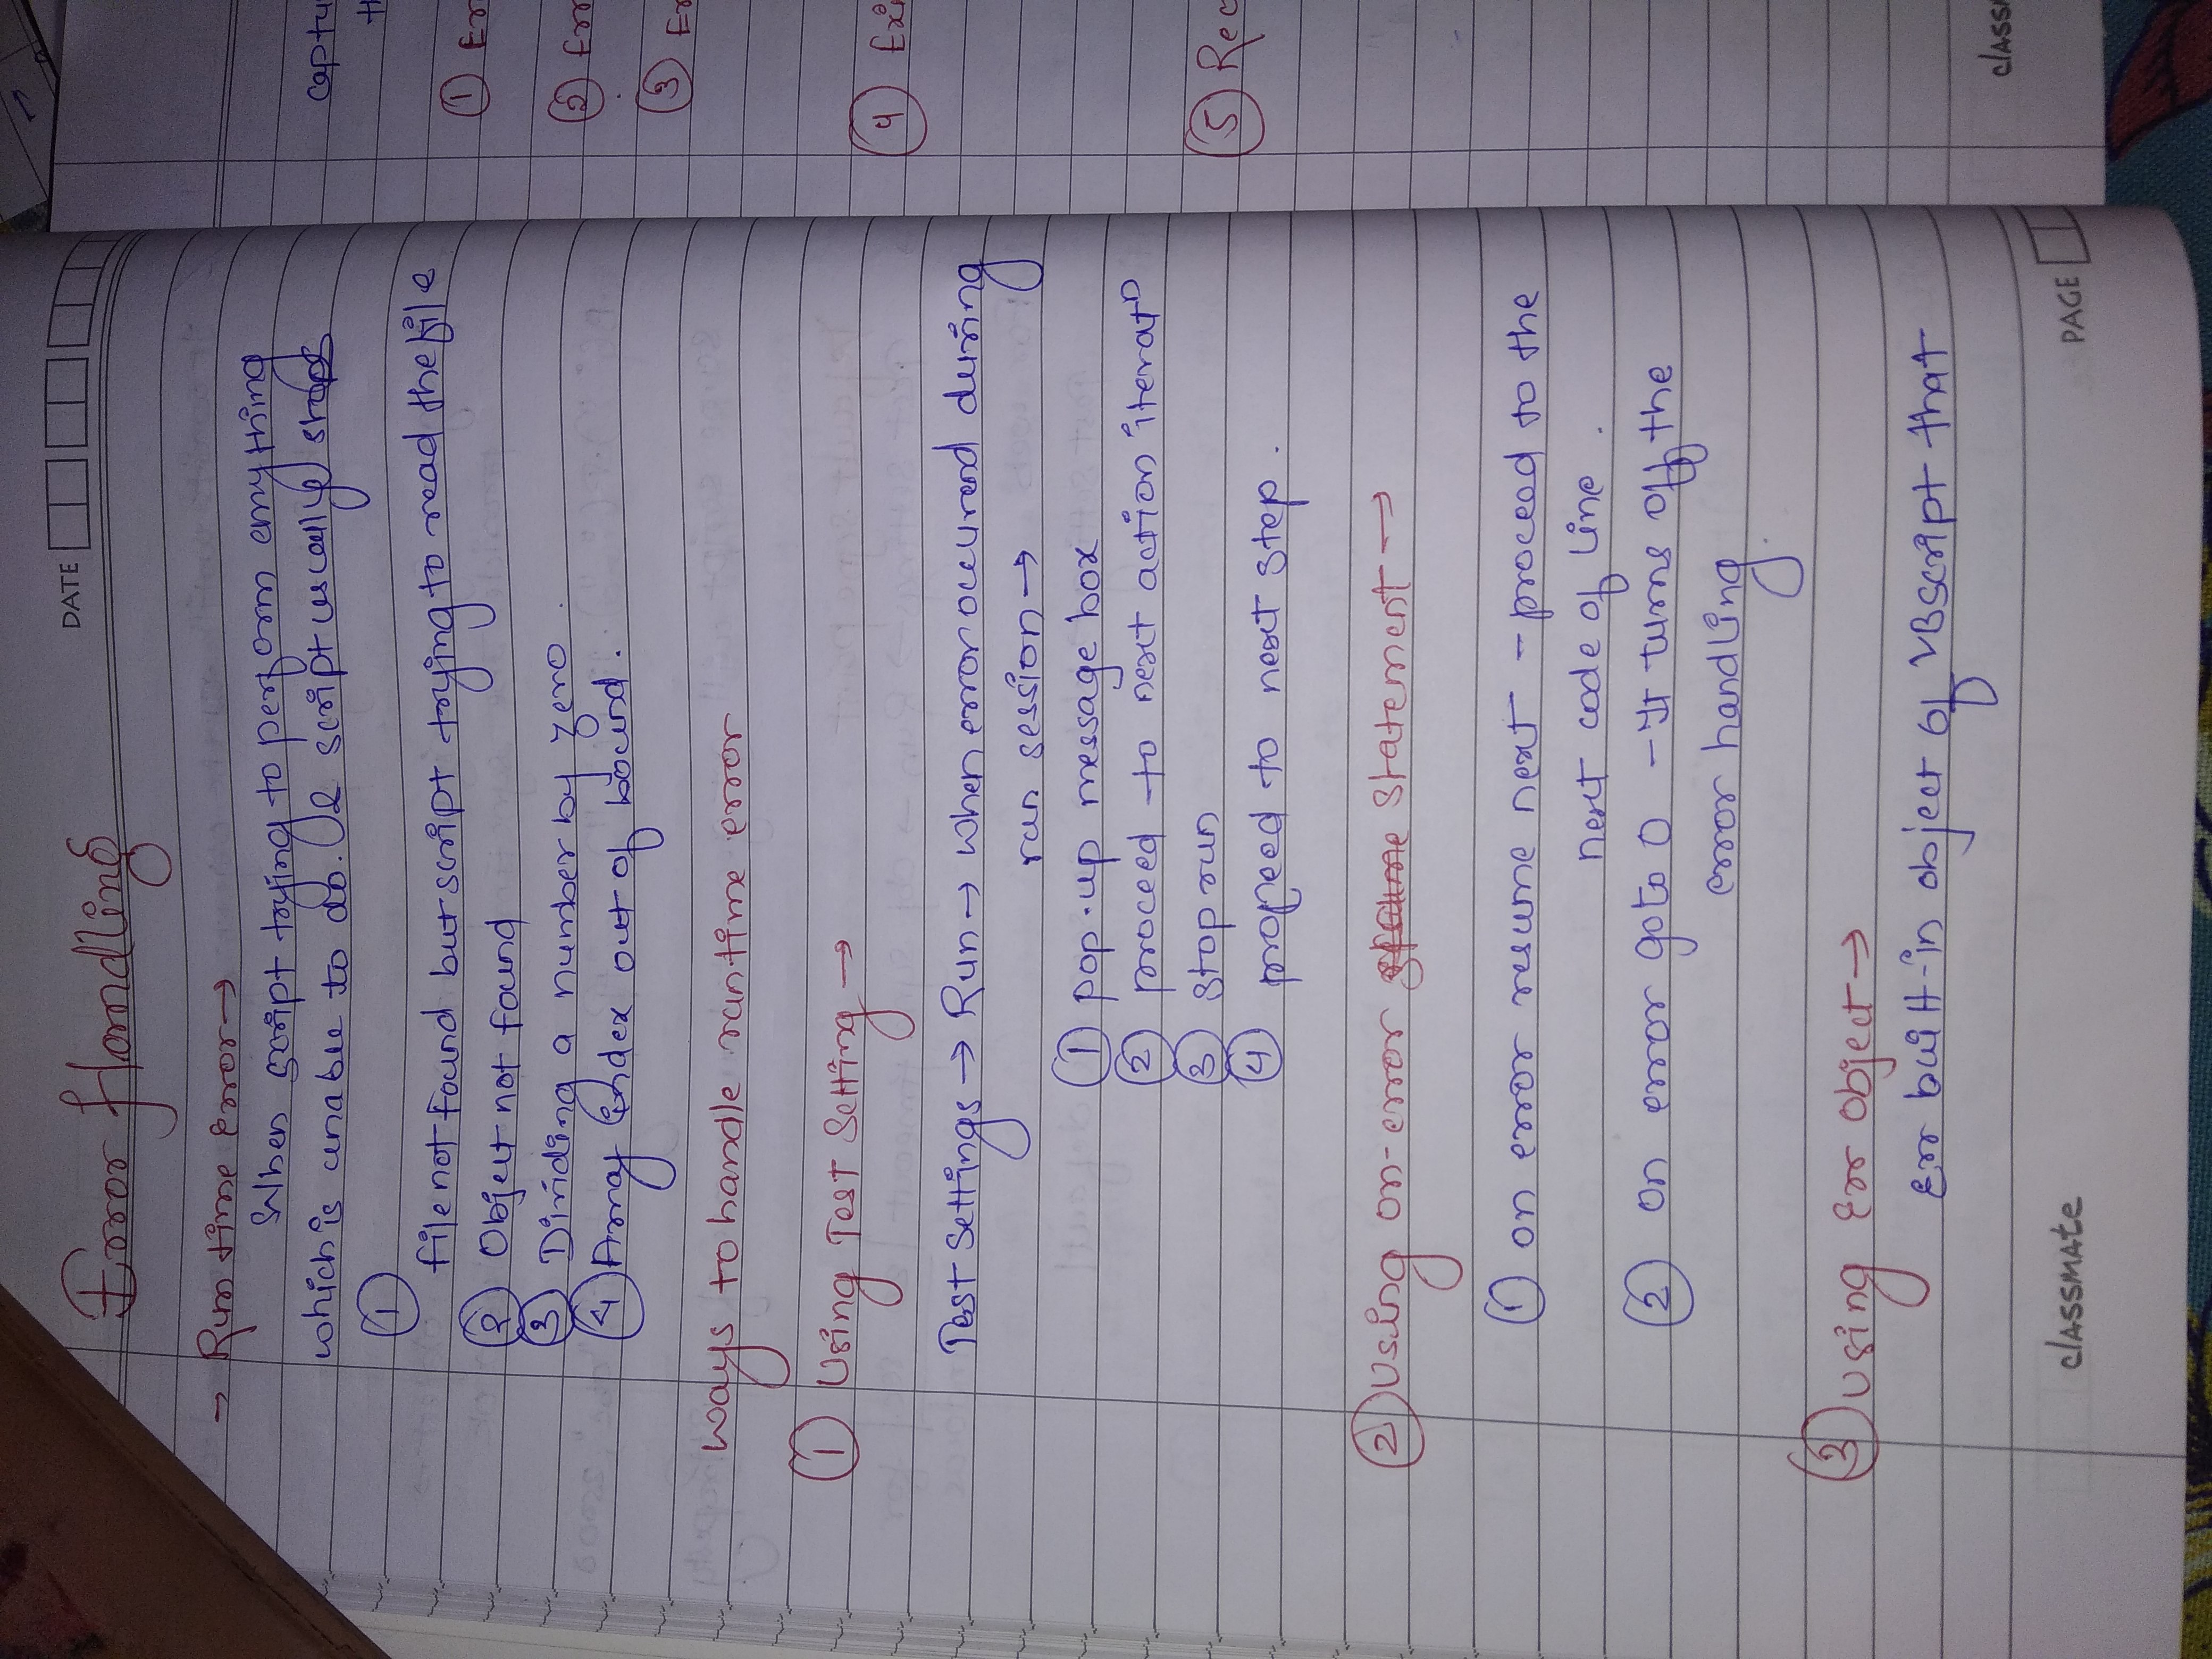 DATE
Error Handling
→ Run time Error →
When Script trying to perform enything
which is unable to do. If script usually stops
① file not found but script trying to read the file
② Object not found
③ Dividing a number by zero.
④ Array Index out of bound.
ways to handle runtime error
① Using Test Setting →
Test Settings → Run → When error occured during
run session →
① pop-up message box
② proceed to next action iterat
③ Stop run
④ proceed to next step.
② Using on-error Statement →
① on error resume next - proceed to the
next code of line.
② on error goto 0 - It turns off the
error handling.
③ using Err object →
Err built-in object of VBScript that
classmate
PAGE
captu
① Err
② Err
③ Er
④ Exi
⑤ Rec
classm